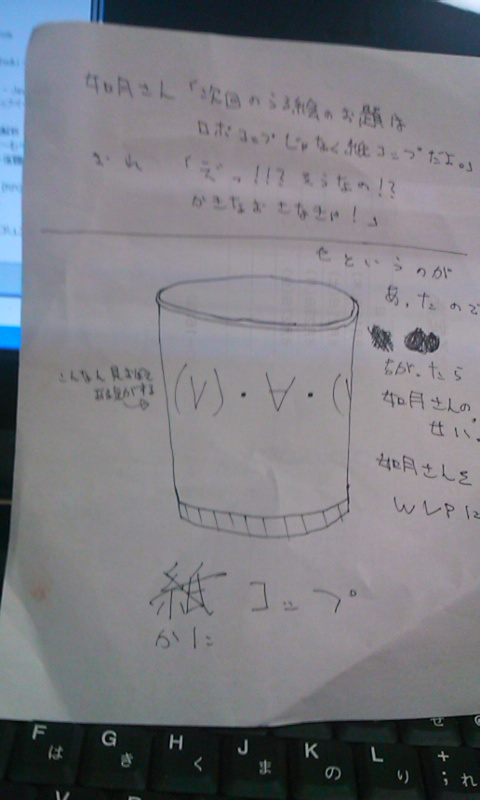 如月さん「次回のうろ絵のお題は
ロボコップじゃなく紙コップだよ。」
おれ 「えっ!!? そうなの!?
かきなおさなきゃ!」
というのが
あったので
ちがったら
如月さんの
せい。
如月さんを
WLPに
こんなん見おぼえ
ある気がする
(V)・∀・(V
紙コップ
かに
F は
G き
H く
J ま
K の
L り
+ ; れ
せ
V
B